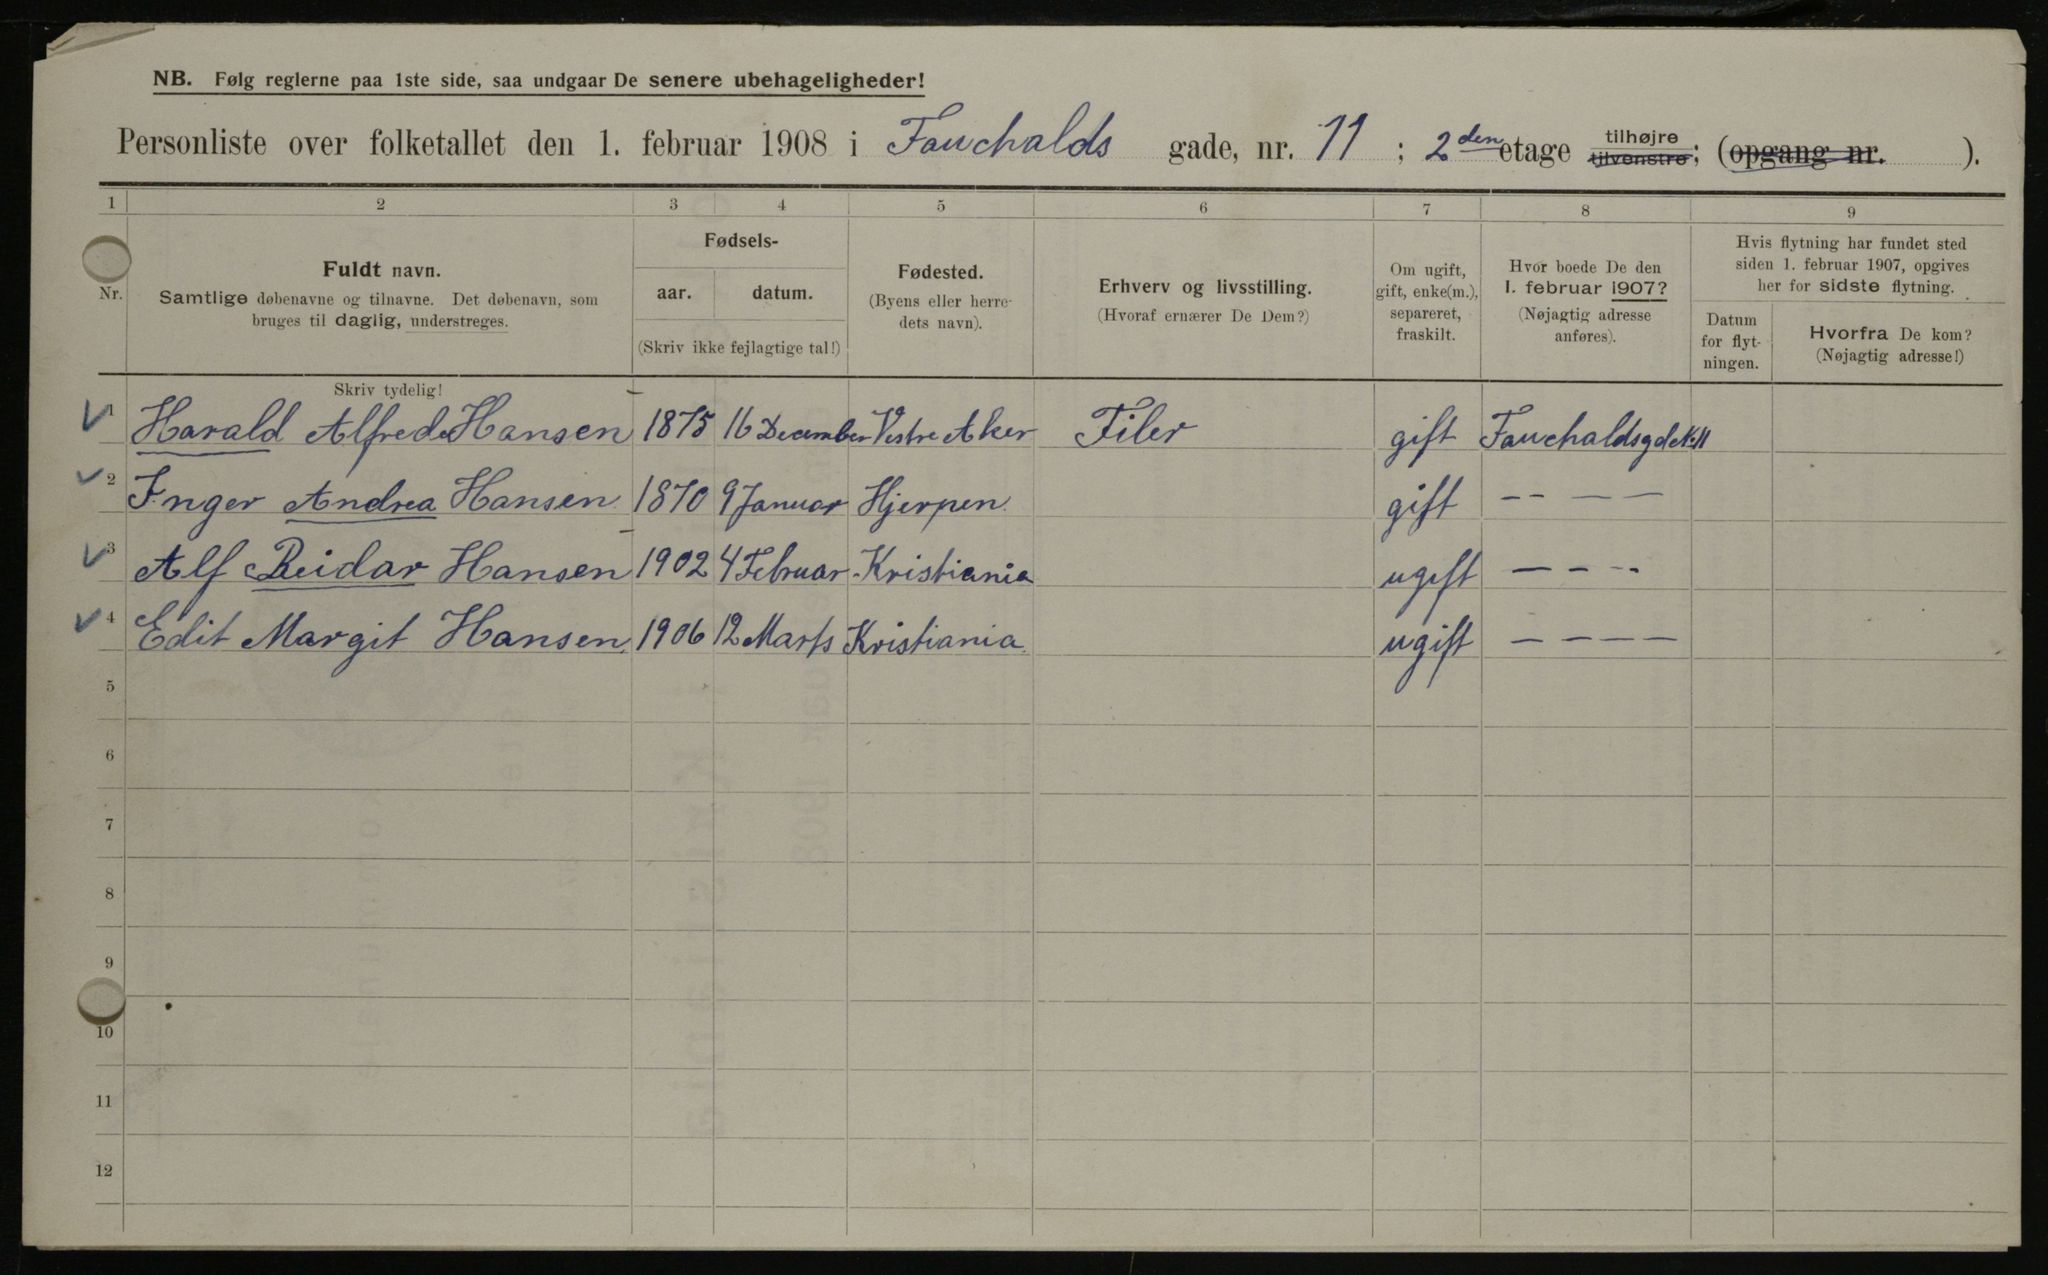 NB. Følg reglerne paa 1ste side, saa undgaar De senere ubehageligheder!
Personliste over folketallet den 1. februar 1908 i Fauchalds gade, nr. 11 ; 2den etage tilhøjre tilvenstre; (opgang nr. ).
1 2 3 4 5 6 7 8 9
Nr.
Fuldt navn.
Samtlige døbenavne og tilnavne. Det døbenavn, som
bruges til daglig, understreges.
Skriv tydelig!
Fødsels-
aar. datum.
(Skriv ikke fejlagtige tal!)
Fødested.
(Byens eller herre-
dets navn).
Erhverv og livsstilling.
(Hvoraf ernærer De Dem?)
Om ugift,
gift, enke(m.),
separeret,
fraskilt.
Hvor boede De den
1. februar 1907?
(Nøjagtig adresse
anføres).
Hvis flytning har fundet sted
siden 1. februar 1907, opgives
her for sidste flytning.
Datum
for flyt-
ningen.
Hvorfra De kom?
(Nøjagtig adresse!)
1 Harald Alfred Hansen 1875 16 December Vestre Aker Filer gift Fauchaldsgd No 11
2 Inger Andrea Hansen 1870 9 Januar Hjerpen gift -- — —
3 Alf Reidar Hansen 1902 4 Februar Kristiania ugift — - --
4 Edit Margit Hansen 1906 12 Marts Kristiania ugift — — — —
5
6
7
8
9
10
11
12